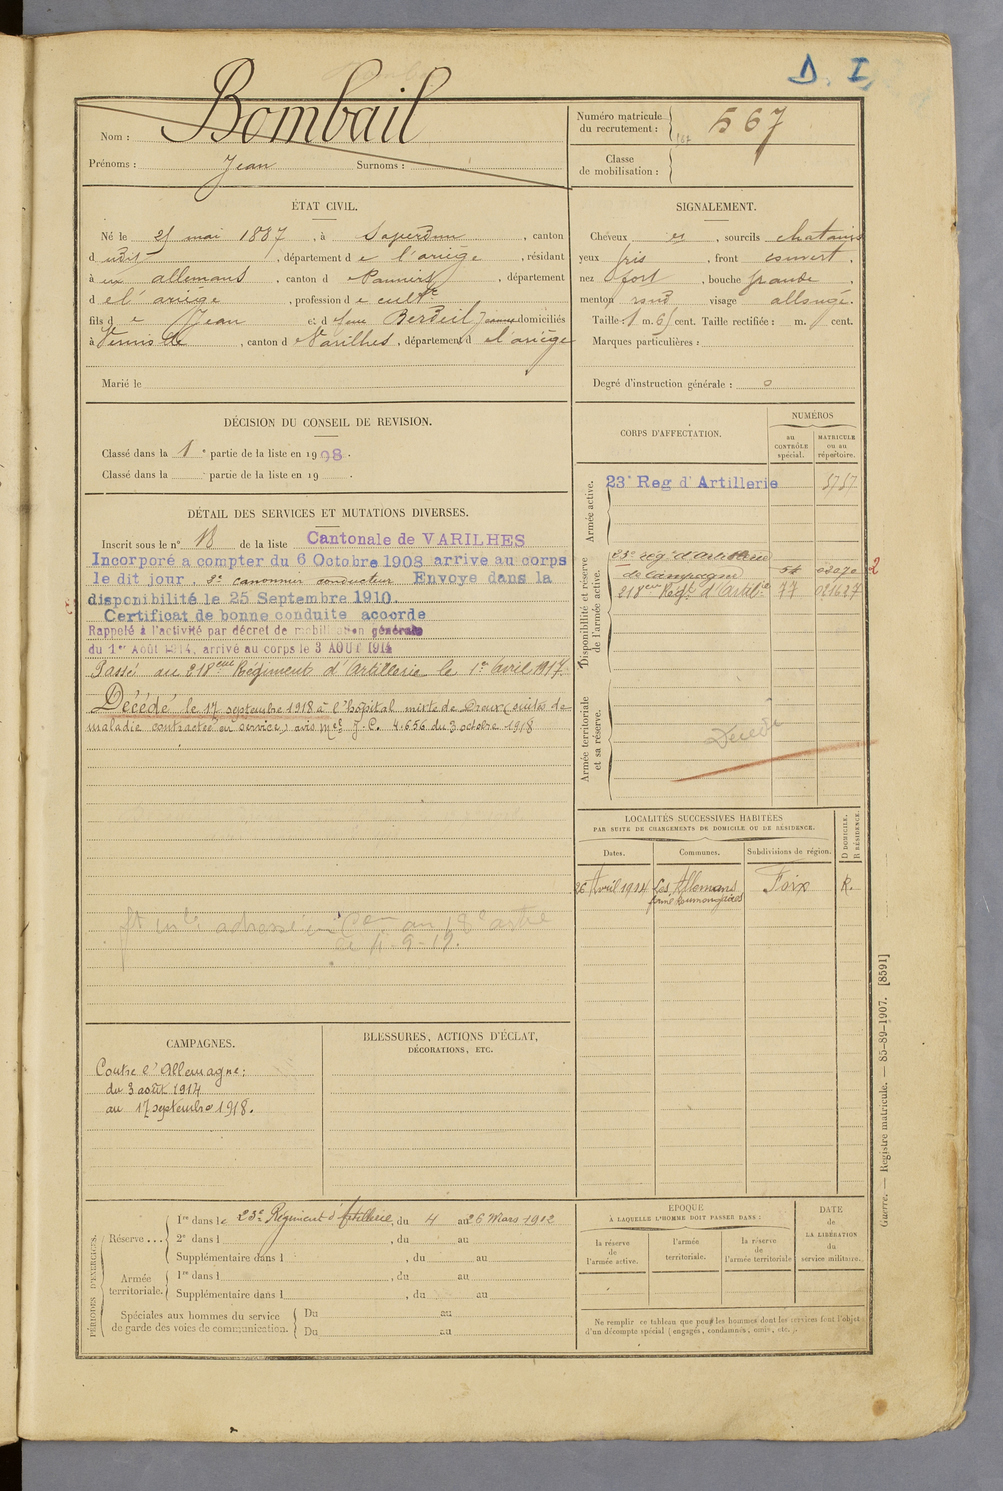 D. I.
Bombail
Nom :
Prénoms : Jean Surnoms :
Numéro matricule du recrutement : 567
Classe de mobilisation :
ÉTAT CIVIL.
Né le 21 mai 1887, à , canton
d udit, département de l'ariège, résidant
à aux allemans, canton d Pamiers, département
de l'ariège, profession de cultr
fils de Jean et d Berdeil Jeanne domiciliés
à Verniolle, canton d Varilhes, département de l'ariège
Marié le
SIGNALEMENT.
Cheveux et, sourcils chatains
yeux gris, front couvert.
nez fort, bouche grande.
menton rond visage allongé.
Taille : 1 m. 65 cent. Taille rectifiée : m. cent.
Marques particulières :
Degré d'instruction générale : 0
DÉCISION DU CONSEIL DE REVISION.
Classé dans la 1e partie de la liste en 1908.
Classé dans la e partie de la liste en 19 .
DÉTAIL DES SERVICES ET MUTATIONS DIVERSES.
Inscrit sous le n° 13 de la liste Cantonale de VARILHES
Incorporé à compter du 6 Octobre 1908 arrive au corps
le dit jour, 2e canonnier conducteur Envoye dans la
disponibilité le 25 Septembre 1910.
Certificat de bonne conduite accorde
Rappelé à l'activité par décret de mobilisation générale
du 1er Août 1914, arrivé au corps le 3 AOUT 1914
Passé au 218eme Régiment d'Artillerie le 1er avril 1917.
Décédé le 17 septembre 1918 à l'hôpital mixte de Dreux (suites de
maladie contractée en service) avis Mel J.C. 4.656 du 3 octobre 1918
CORPS D'AFFECTATION.
NUMÉROS
au CONTRÔLE spécial.
MATRICULE ou au répertoire.
Armée active.
23e Reg d'Artillerie 5757
Disponibilité et réserve de l'armée active.
23e rég. d'artillerie
de campagne 54 03070 2
218eme Régt d'Artil. 77 021627
Armée territoriale et sa réserve.
Décédé
LOCALITÉS SUCCESSIVES HABITÉES
PAR SUITE DE CHANGEMENTS DE DOMICILE OU DE RÉSIDENCE.
Dates. Communes. Subdivisions de région. D DOMICILE. R RÉSIDENCE.
26 Avril 1914 Les Allemans Foix R.
CAMPAGNES.
Contre l'Allemagne :
du 3 août 1914
au 17 septembre 1918.
BLESSURES, ACTIONS D'ÉCLAT,
DÉCORATIONS, ETC.
PÉRIODES D'EXERCICES.
Réserve ...
1re dans le 23e Régiment d'Artillerie, du 4 au 26 Mars 1912
2e dans l , du au
Supplémentaire dans l , du au
Armée territoriale.
1re dans l , du au
Supplémentaire dans l , du au
Spéciales aux hommes du service
de garde des voies de communication.
Du au
Du au
ÉPOQUE
À LAQUELLE L'HOMME DOIT PASSER DANS :
la réserve de l'armée active.
l'armée territoriale.
la réserve de l'armée territoriale
DATE
de
LA LIBÉRATION
du
service militaire.
Ne remplir ce tableau que pour les hommes dont les services font l'objet
d'un décompte spécial (engagés, condamnés, omis, etc.).
Guerre. — Registre matricule. — 85-89-1907. [8591]